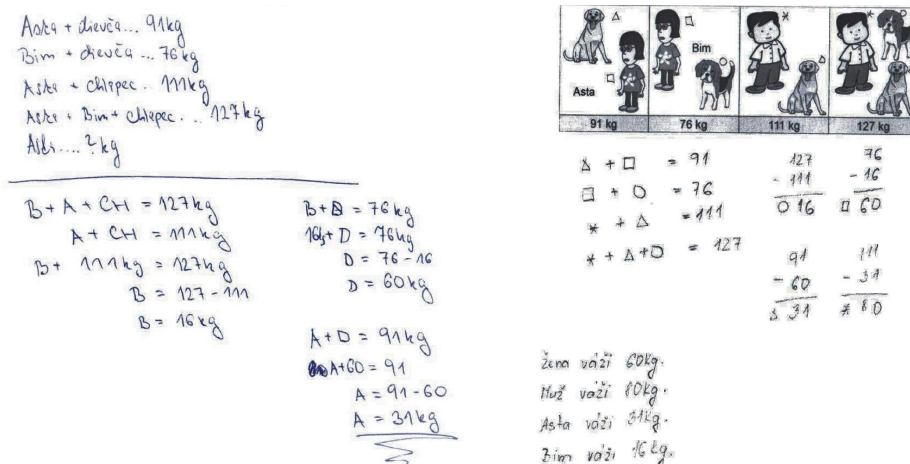 Asta + dievča... 91kg
Bim + dievča ... 76kg
Asta + chlapec . 111kg
Asta + Bim + chlapec ... 127kg
Asta .... ? kg
B + A + CH = 127kg
A + CH = 111kg
B + 111kg = 127kg
B = 127 - 111
B = 16kg
B + D = 76kg
16 + D = 76kg
D = 76 - 16
D = 60kg
A + D = 91kg
A + 60 = 91
A = 91 - 60
A = 31kg
Asta
Bim
91 kg
76 kg
111 kg
127 kg
△ + □ = 91
□ + O = 76
* + △ = 111
* + △ + O = 127
127
- 111
O 16
76
- 16
□ 60
91
- 60
△ 31
111
- 31
* 80
Žena váži 60kg.
Muž váži 80kg.
Asta váži 31kg.
Bim váži 16kg.